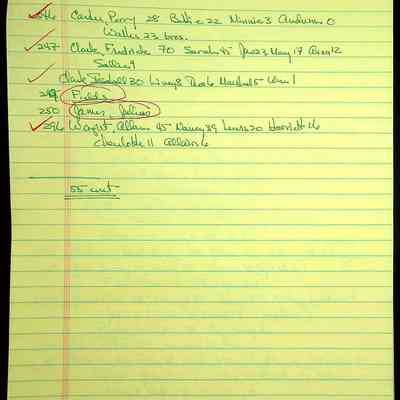 246 Carter, Perry 28 Bettie 22 Minnie 3 Anderson 0
Walter 23 bro.
247 Clark, Fredrick 70 Sarah 45 Jas 23 May 17 12
Sallie 9
Clark 30 8 6 Marshall 5 1
249 Fields
250 James, Julius
296 Wright, Allen 45 Nancy 39 Lewis 20 Harriett 16
Charlotte 11 Allen 6
55 cut